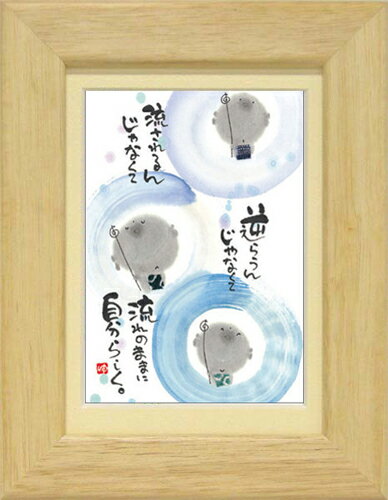 流されるん
じゃなくて
逆らうん
じゃなくて
流れのままに
自分らしく。